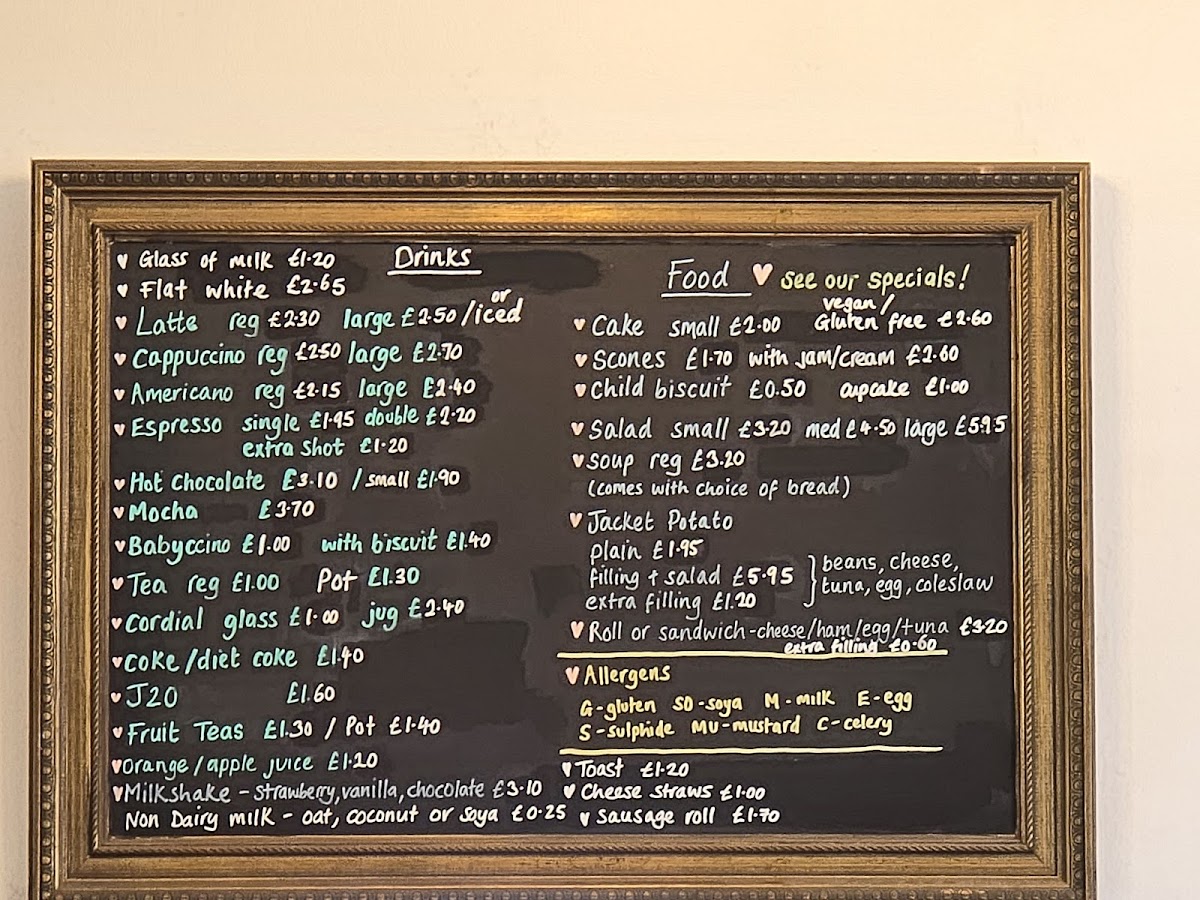 Drinks
♥ Glass of milk £1.20
♥ Flat white £2.65
♥ Latte reg £2.30 large £2.50 / or iced
♥ Cappuccino reg £2.50 large £2.70
♥ Americano reg £2.15 large £2.40
♥ Espresso single £1.95 double £2.20
extra shot £1.20
♥ Hot Chocolate £3.10 / small £1.90
♥ Mocha £3.70
♥ Babyccino £1.00 with biscuit £1.40
♥ Tea reg £1.00 Pot £1.30
♥ Cordial glass £1.00 jug £2.40
♥ coke / diet coke £1.40
♥ J20 £1.60
♥ Fruit Teas £1.30 / Pot £1.40
♥ orange / apple juice £1.20
♥ Milkshake - strawberry, vanilla, chocolate £3.10
Non Dairy milk - oat, coconut or soya £0.25
Food ♥ see our specials!
♥ Cake small £2.00 vegan / Gluten free £2.60
♥ Scones £1.70 with jam/cream £2.60
♥ Child biscuit £0.50 cupcake £1.00
♥ Salad small £3.20 med £4.50 large £5.95
♥ soup reg £3.20
(comes with choice of bread)
♥ Jacket Potato
plain £1.95
filling + salad £5.95 } beans, cheese,
extra filling £1.20 tuna, egg, coleslaw
♥ Roll or sandwich - cheese/ham/egg/tuna £3.20
extra filling £0.60
♥ Allergens
G - gluten SO - soya M - milk E - egg
S - sulphide MU - mustard C - celery
♥ Toast £1.20
♥ Cheese straws £1.00
♥ Sausage roll £1.70